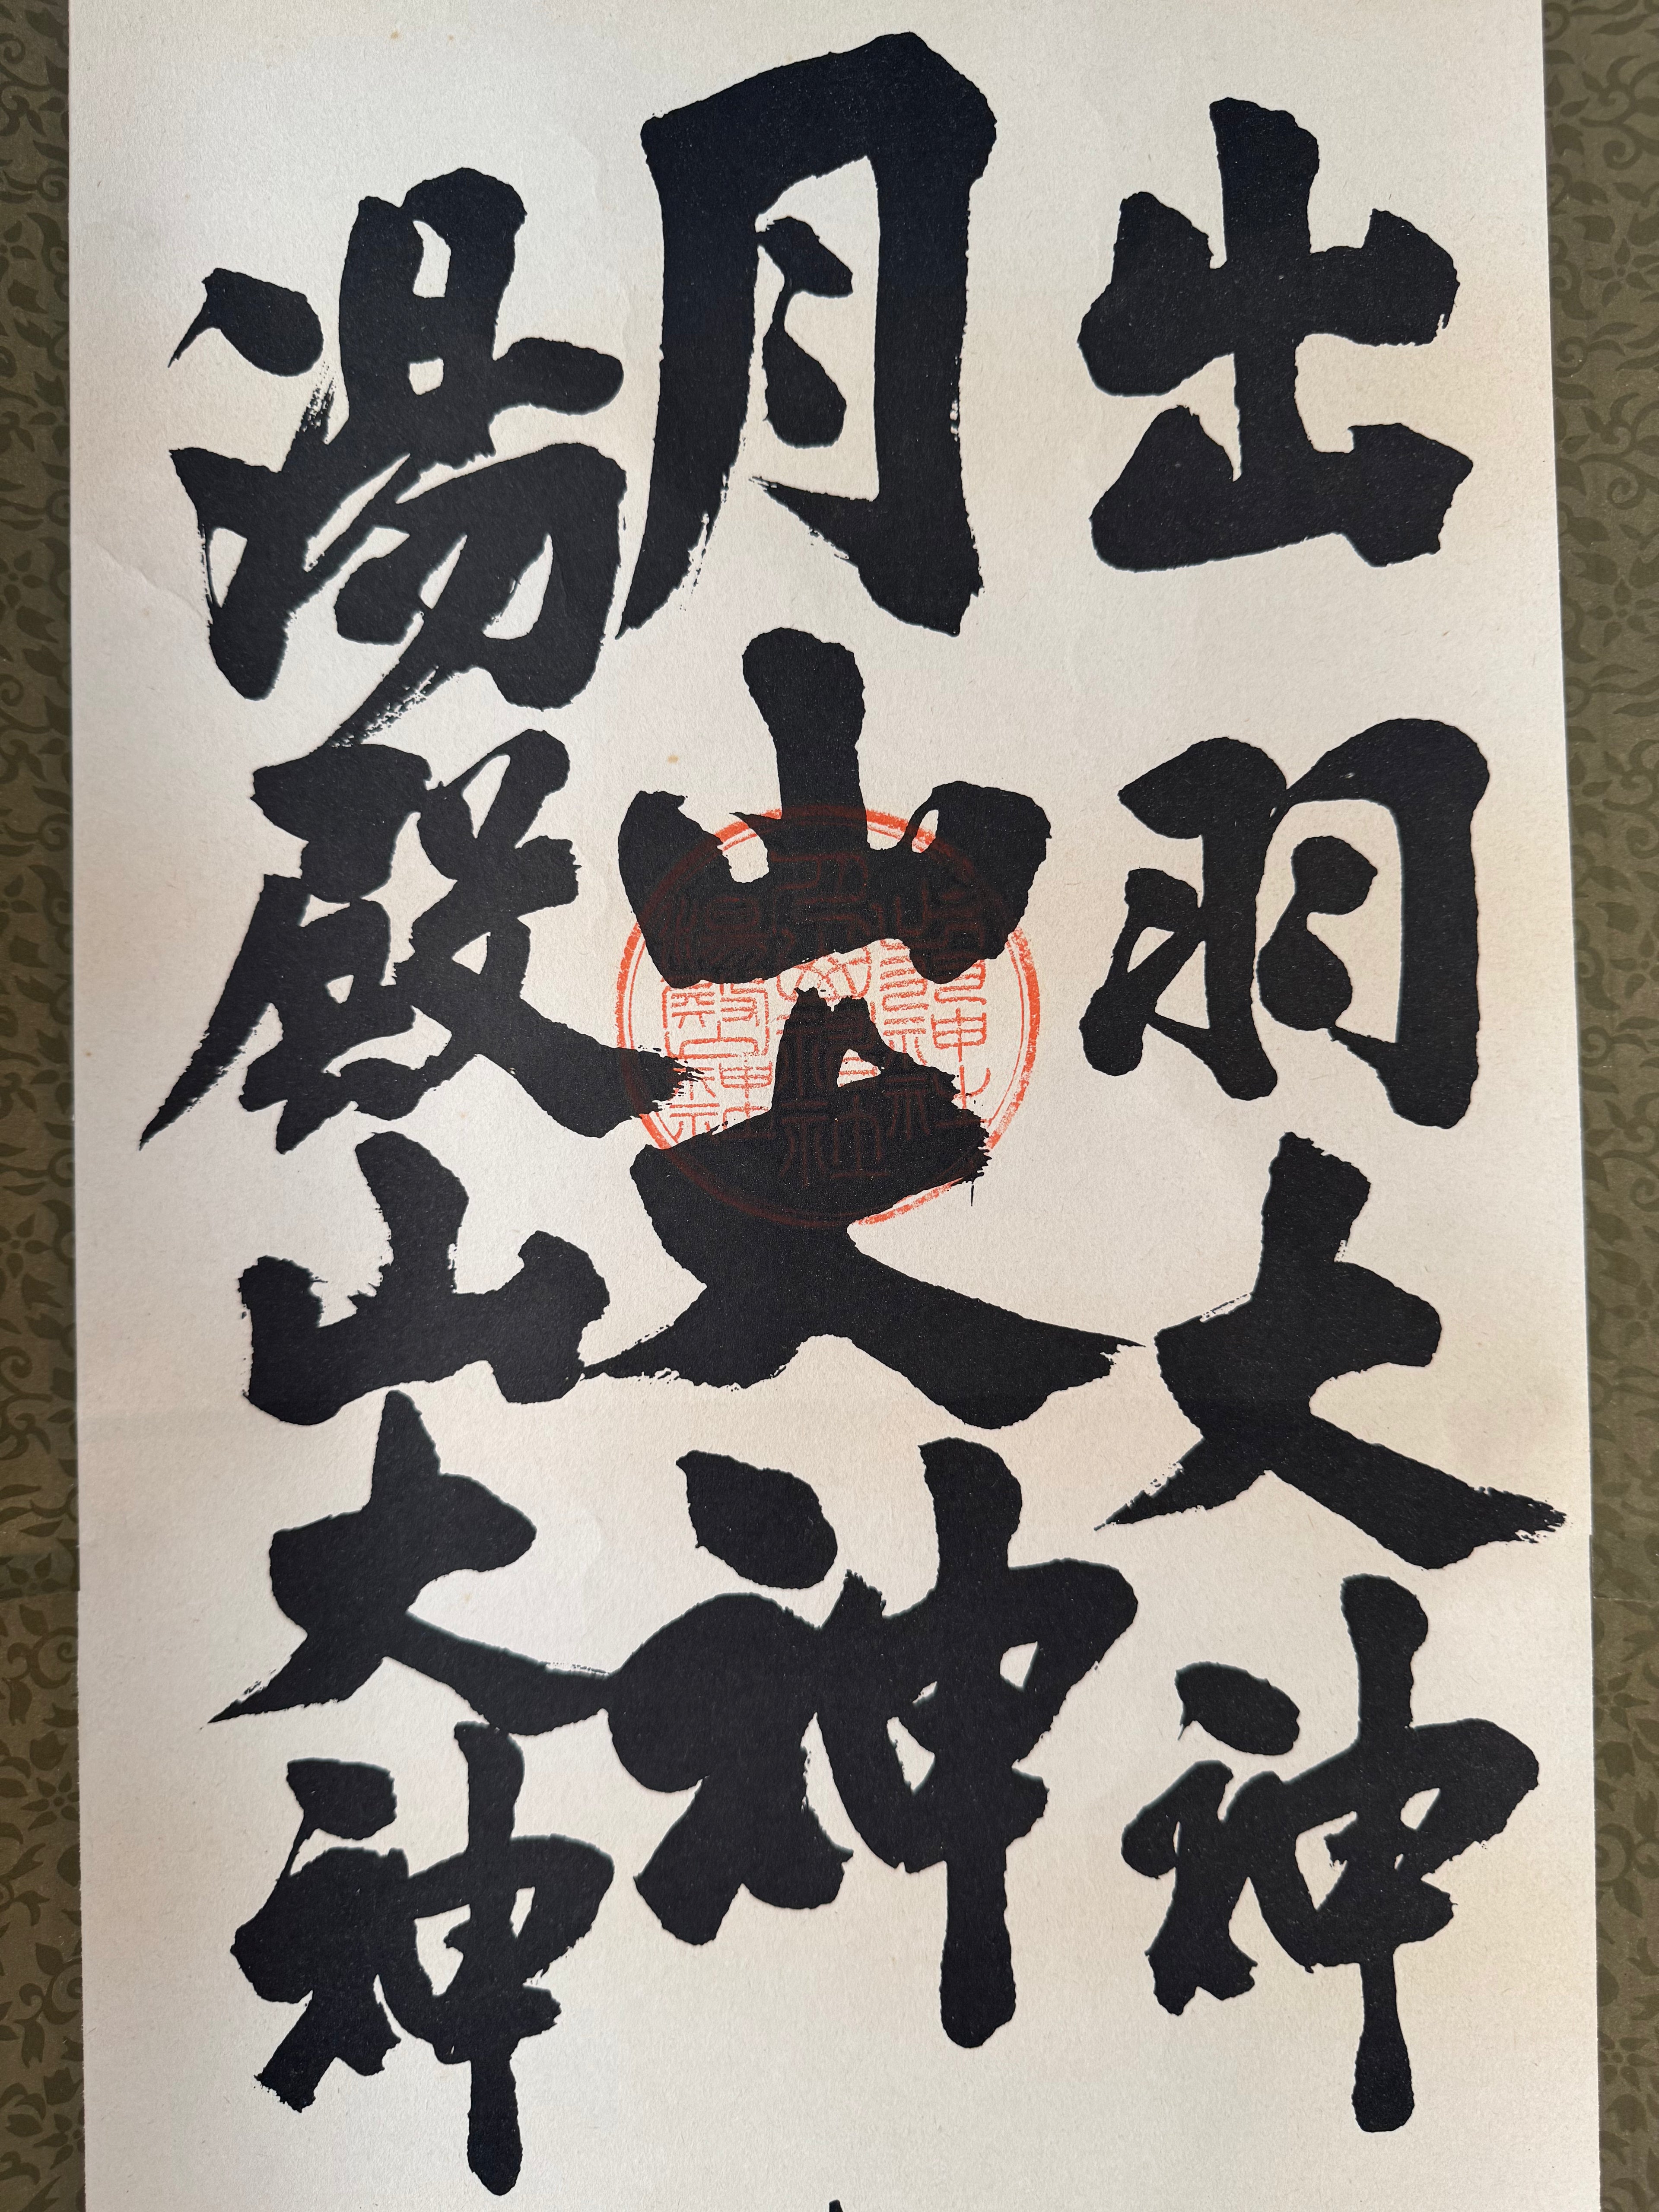 出羽大神
月山大神
湯殿山大神